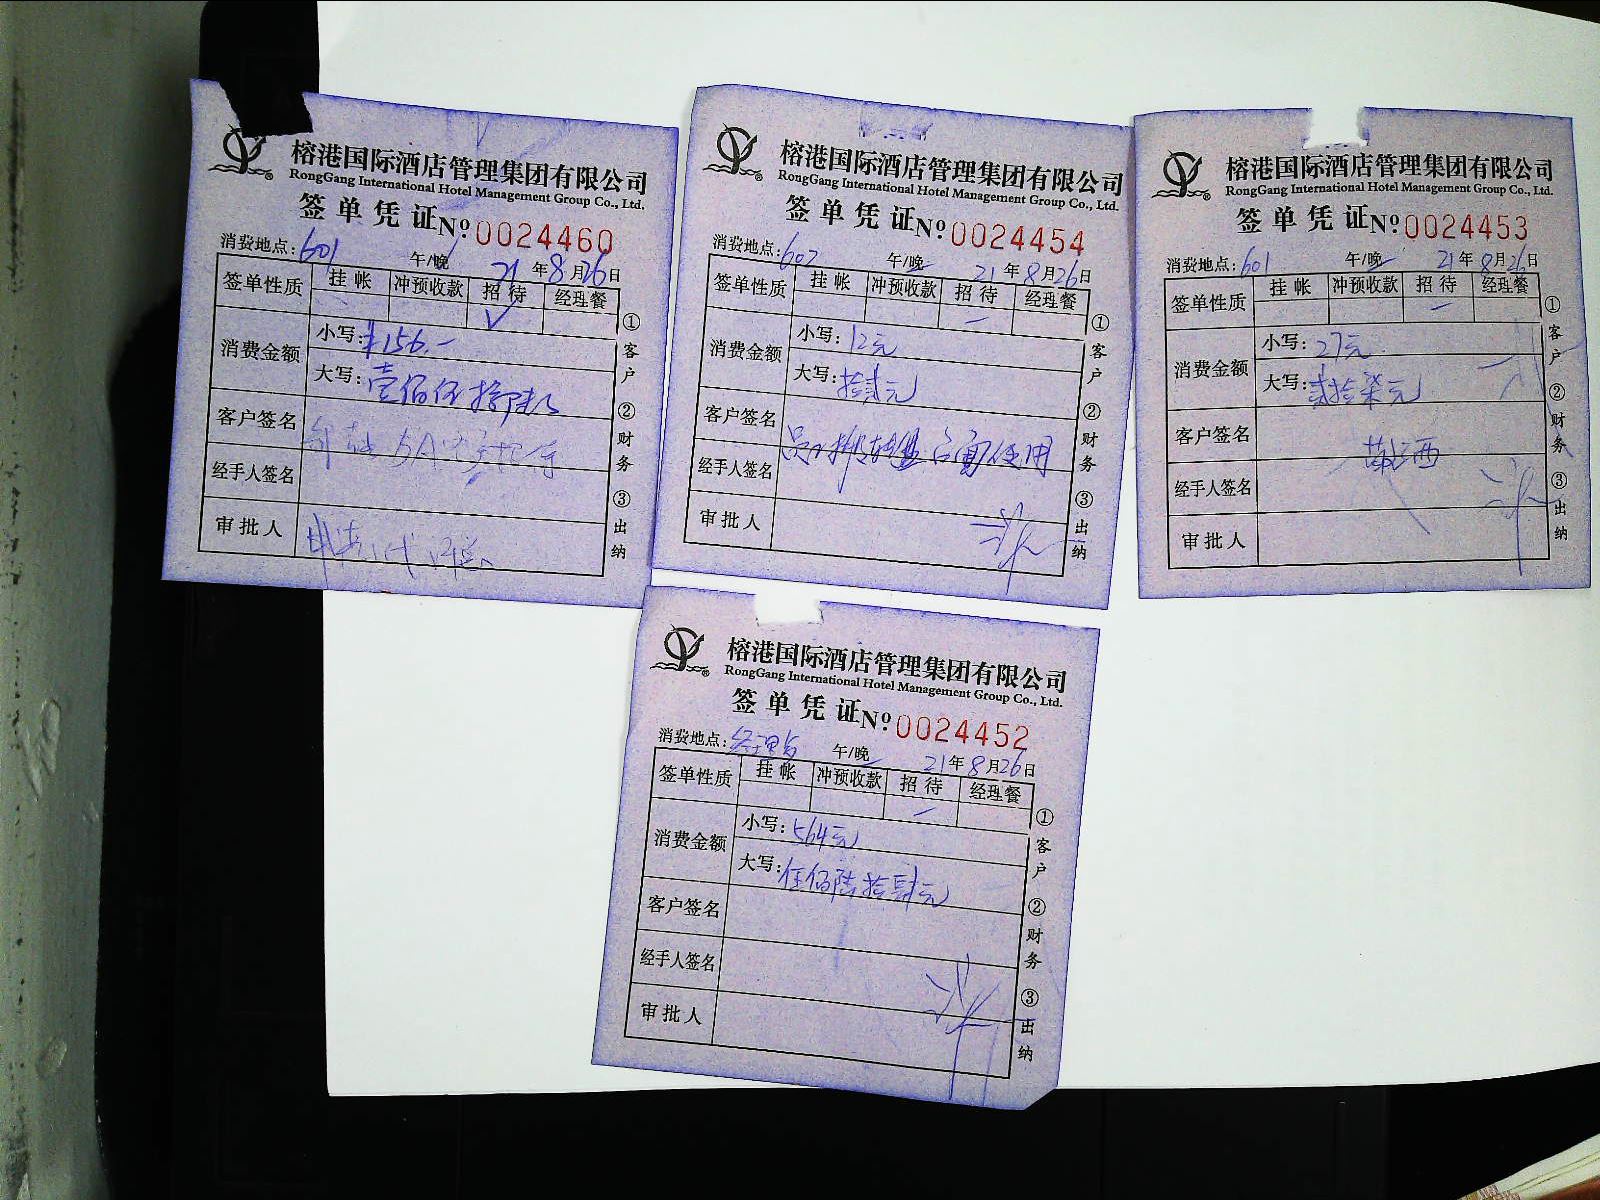 榕港国际酒店管理集团有限公司
RongGang International Hotel Management Group Co., Ltd.
签单凭证 Nº 0024460
消费地点: 601 午/晚 21年8月26日
签单性质 挂帐 冲预收款 招待 经理餐
✓
消费金额 小写: ¥156.-
大写: 壹佰伍拾陆元
客户签名
经手人签名
审批人
① 客户 ② 财务 ③ 出纳
榕港国际酒店管理集团有限公司
RongGang International Hotel Management Group Co., Ltd.
签单凭证 Nº 0024454
消费地点: 602 午/晚 21年8月26日
签单性质 挂帐 冲预收款 招待 经理餐
消费金额 小写: 12元
大写: 拾贰元
客户签名
使用
经手人签名
审批人
① 客户 ② 财务 ③ 出纳
榕港国际酒店管理集团有限公司
RongGang International Hotel Management Group Co., Ltd.
签单凭证 Nº 0024453
消费地点: 601 午/晚 21年8月26日
签单性质 挂帐 冲预收款 招待 经理餐
消费金额 小写: 27元
大写: 贰拾柒元
客户签名
经手人签名
审批人
① 客户 ② 财务 ③ 出纳
榕港国际酒店管理集团有限公司
RongGang International Hotel Management Group Co., Ltd.
签单凭证 Nº 0024452
消费地点: 经理台 午/晚 21年8月26日
签单性质 挂帐 冲预收款 招待 经理餐
消费金额 小写: 564元
大写: 伍佰陆拾肆元
客户签名
经手人签名
审批人
① 客户 ② 财务 ③ 出纳